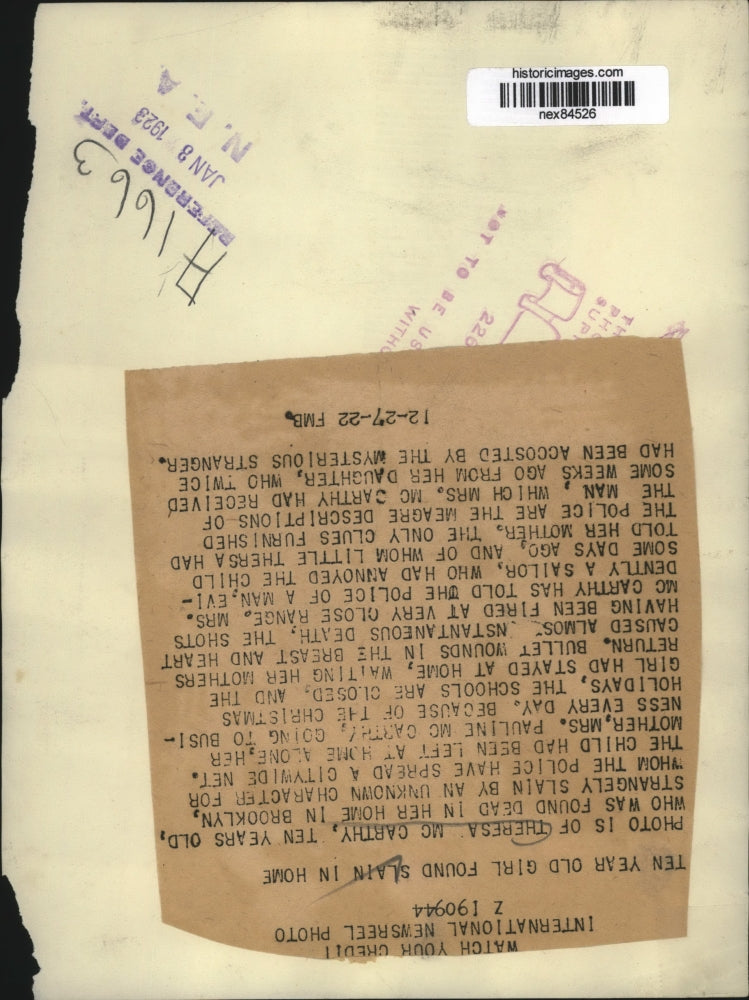 historicimages.com
nex84526
REFERENCE DEPT.
JAN 8 1923
N. E. A.
A1663
NOT TO BE US
226
WITHO
WATCH YOUR CREDIT
INTERNATIONAL NEWSREEL PHOTO
Z I90944
TEN YEAR OLD GIRL FOUND SLAIN IN HOME
PHOTO IS OF THERESA MC CARTHY, TEN YEARS OLD,
WHO WAS FOUND DEAD IN HER HOME IN BROOKLYN,
STRANGELY SLAIN BY AN UNKNOWN CHARACTER FOR
WHOM THE POLICE HAVE SPREAD A CITYWIDE NET.
THE CHILD HAD BEEN LEFT AT HOME ALONE, HER
MOTHER, MRS. PAULINE MC CARTHY, GOING TO BUSI-
NESS EVERY DAY. BECAUSE OF THE CHRISTMAS
HOLIDAYS, THE SCHOOLS ARE CLOSED, AND THE
GIRL HAD STAYED AT HOME, WAITING HER MOTHERS
RETURN. BULLET WOUNDS IN THE BREAST AND HEART
CAUSED ALMOS NSTANTANEOUS DEATH, THE SHOTS
HAVING BEEN FIRED AT VERY CLOSE RANGE. MRS.
MC CARTHY HAS TOLD THE POLICE OF A MAN, EVI-
DENTLY A SAILOR, WHO HAD ANNOYED THE CHILD
SOME DAYS AGO, AND OF WHOM LITTLE THERSA HAD
TOLD HER MOTHER. THE ONLY CLUES FURNISHED
THE POLICE ARE THE MEAGRE DESCRIPTIONS OF
THE MAN, WHICH MRS. MC CARTHY HAD RECEIVED
SOME WEEKS AGO FROM HER DAUGHTER, WHO TWICE
HAD BEEN ACCOSTED BY THE MYSTERIOUS STRANGER.
12-27-22 FMB.